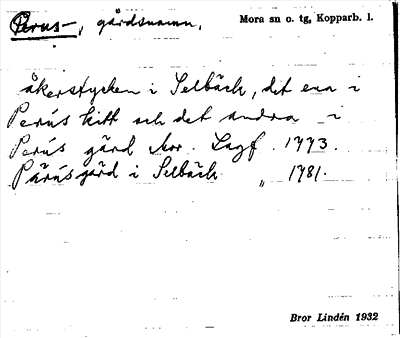 Perus-, gårdsnamn. Mora sn o. tg, Kopparb. l.
åkerstycken i Selbäck, det ena i
Perús kitt och det andra i
Perús gård Mor. Lagf. 1773.
Pärúsgård i Selbäck „ 1781.
Bror Lindén 1932